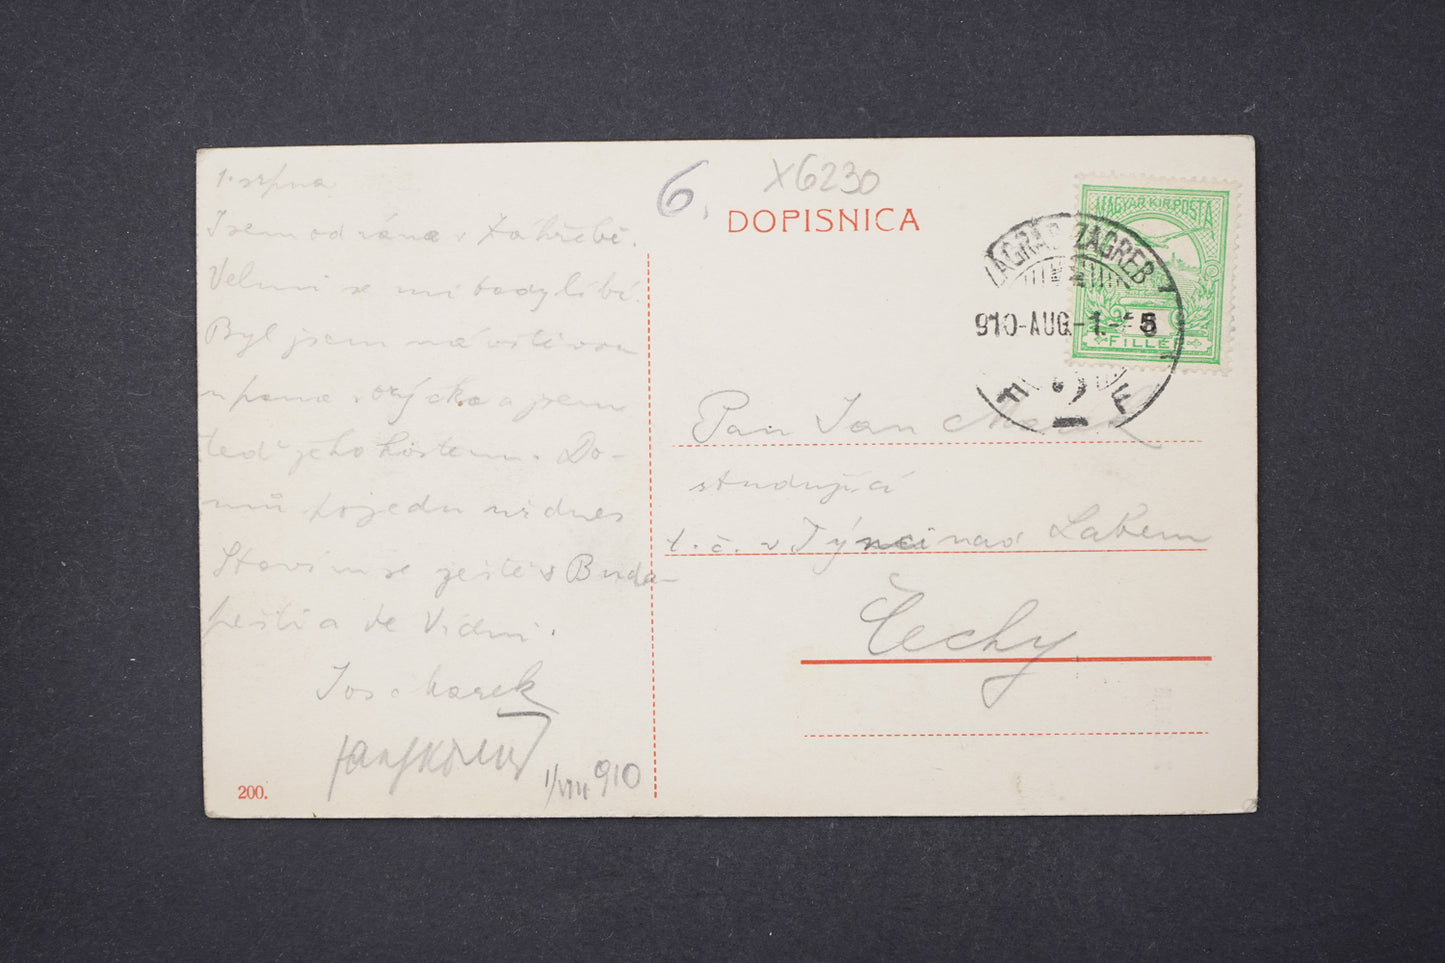 1. srpna
Jsem od rána v Záhřebě.
Velmi se mi tady líbí.
Byl jsem na
u pana a jsem
teď jeho hostem. Do-
mů pojedu už dnes
Stavím se ještě v Buda-
pešti a ve Vídni.
Jos. Marek
1/VIII 910
200.
6.
X6230
DOPISNICA
MAGYAR KIR. POSTA
FILLÉR
ZÁGRÁB ZAGREB
910-AUG-1.- 5
Pan Jan Marek
studující
t. č. v Týnci nad Labem
Čechy